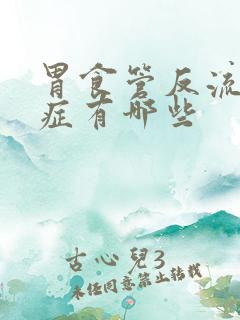 胃食管反流
症有哪些
古心兒3
未经同意禁止转载